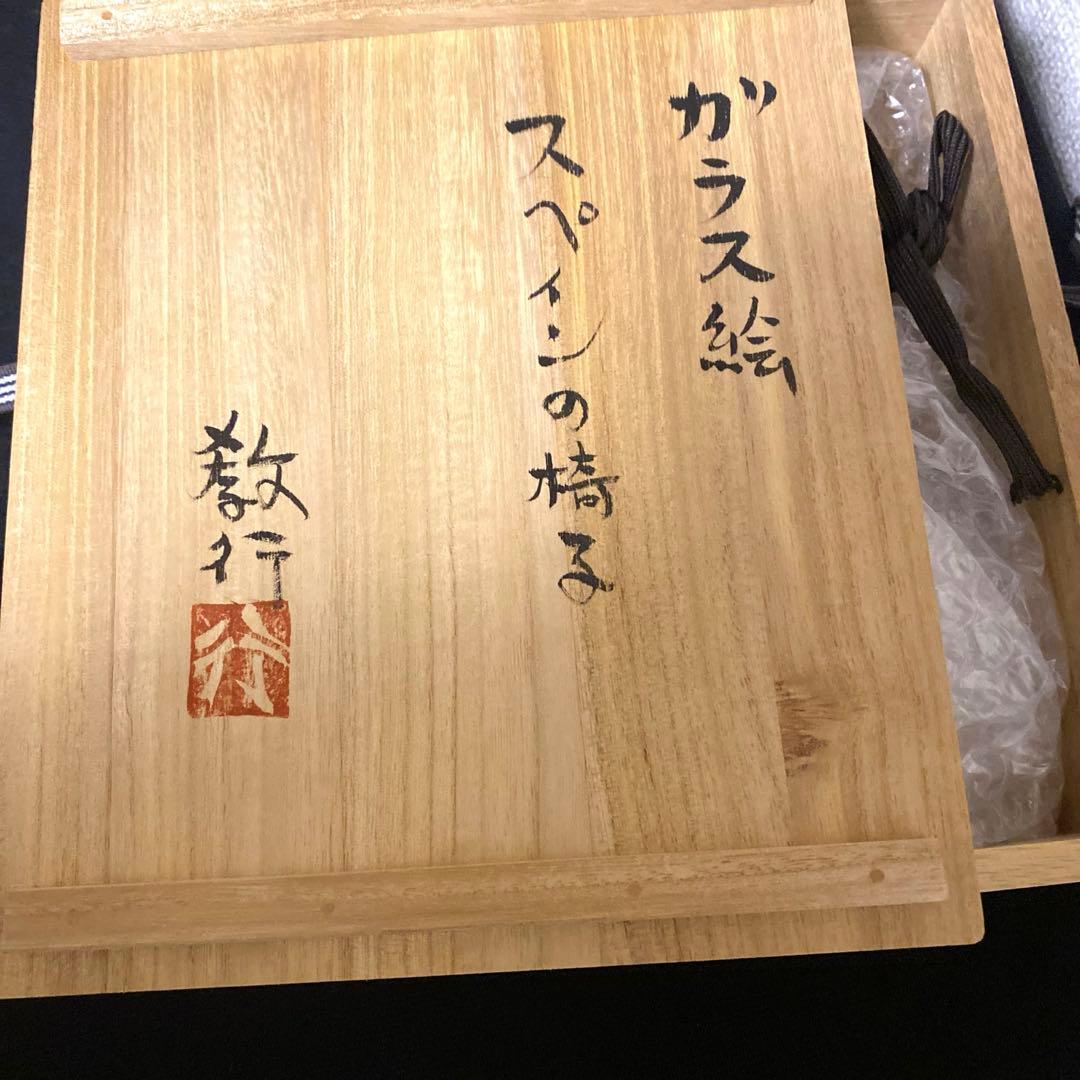 ガラス絵
スペインの椅子
教行
行